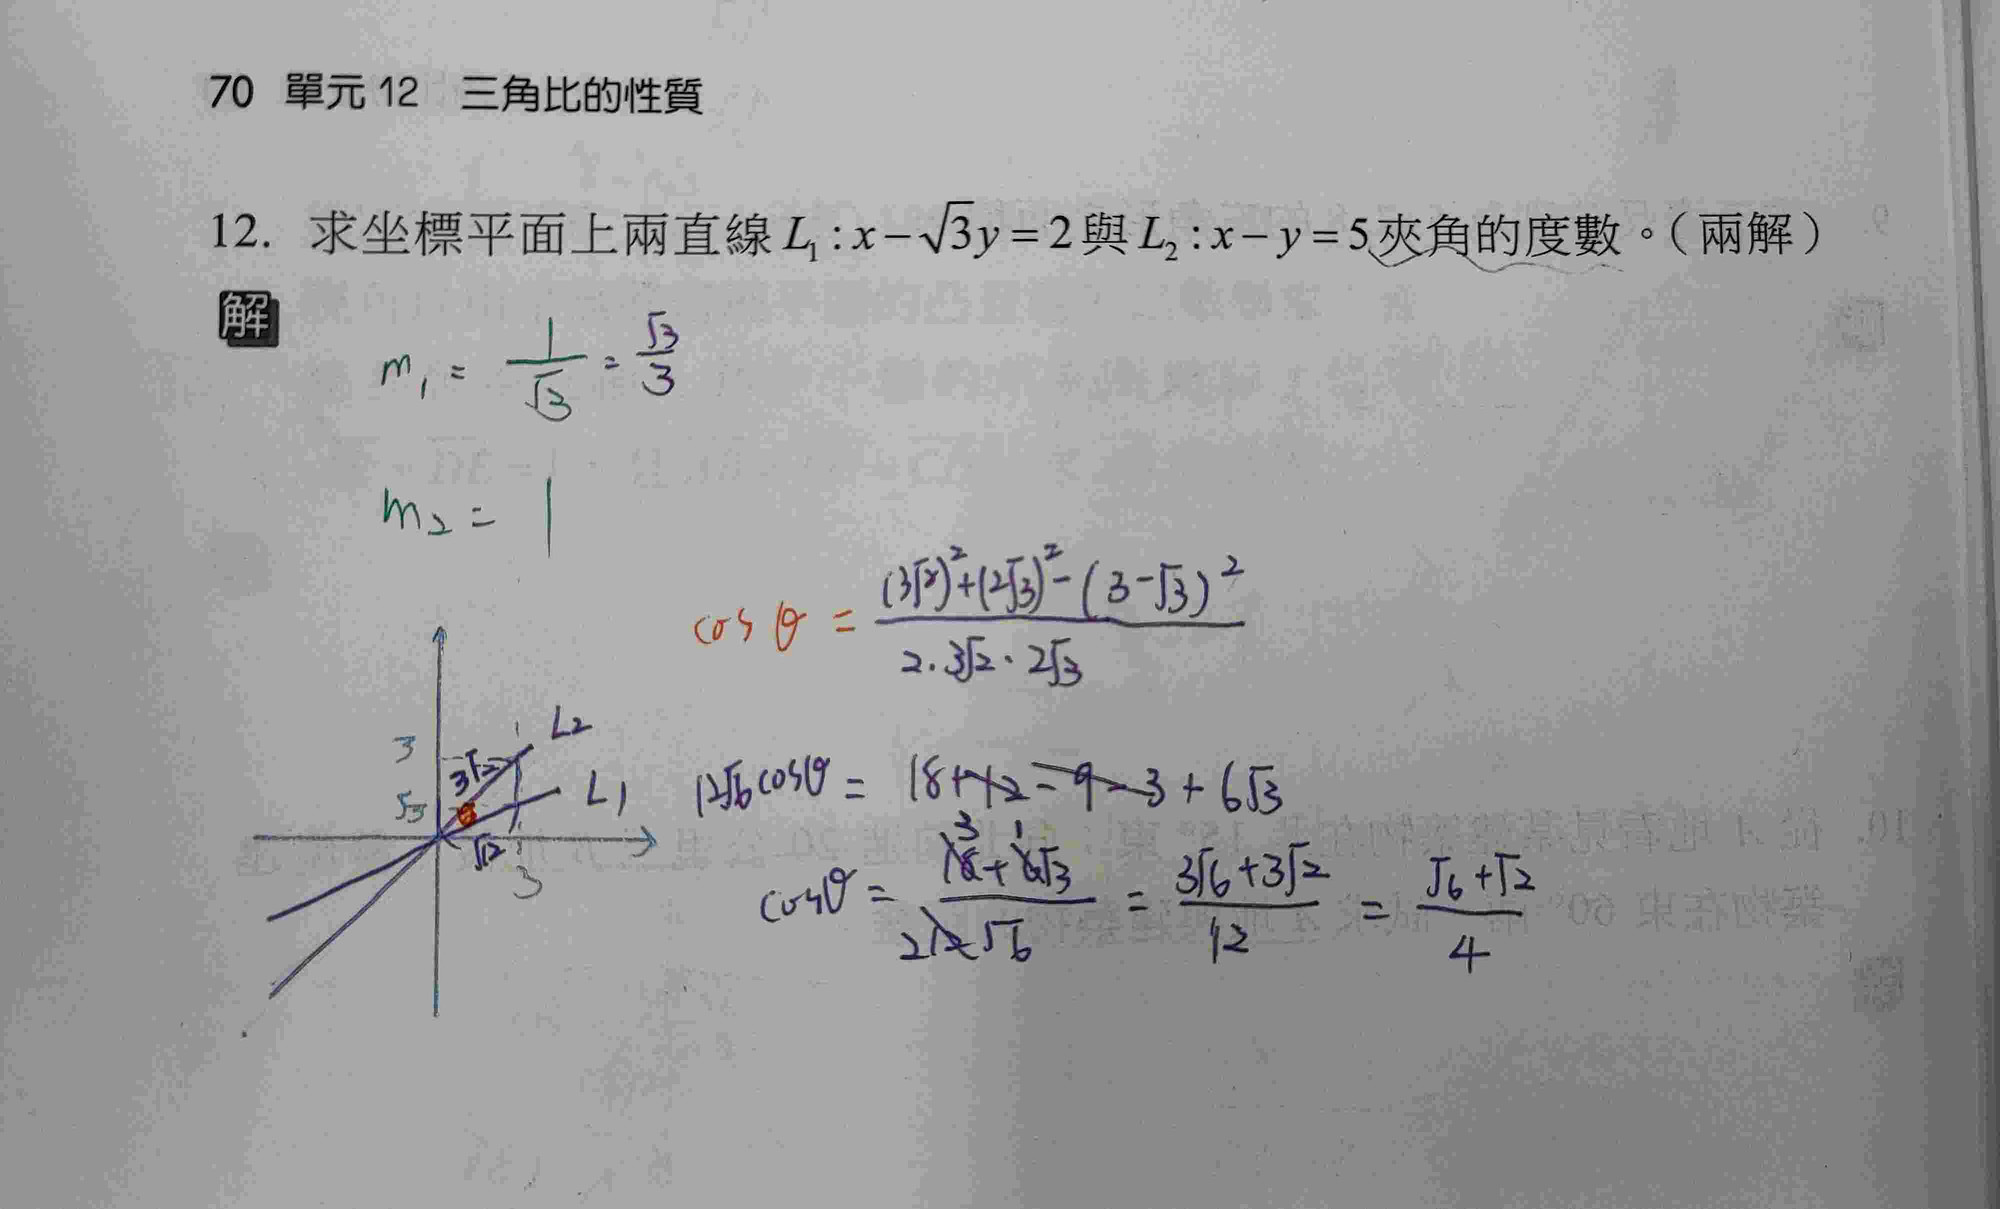 70 單元 12 三角比的性質
12. 求坐標平面上兩直線 L₁ : x − √3y = 2 與 L₂ : x − y = 5 夾角的度數。（兩解）
解
m₁ = 1/√3 = √3/3
m₂ = 1
cos θ = ((3√2)² + (2√3)² − (3−√3)²) / (2·3√2·2√3)
L2
3
3√2
L1
√3
θ
√2
3
12√6 cosθ = 18+12−9−3+6√3
cosθ = (18+6√3)/(12√6) = (3√6+3√2)/12 = (√6+√2)/4